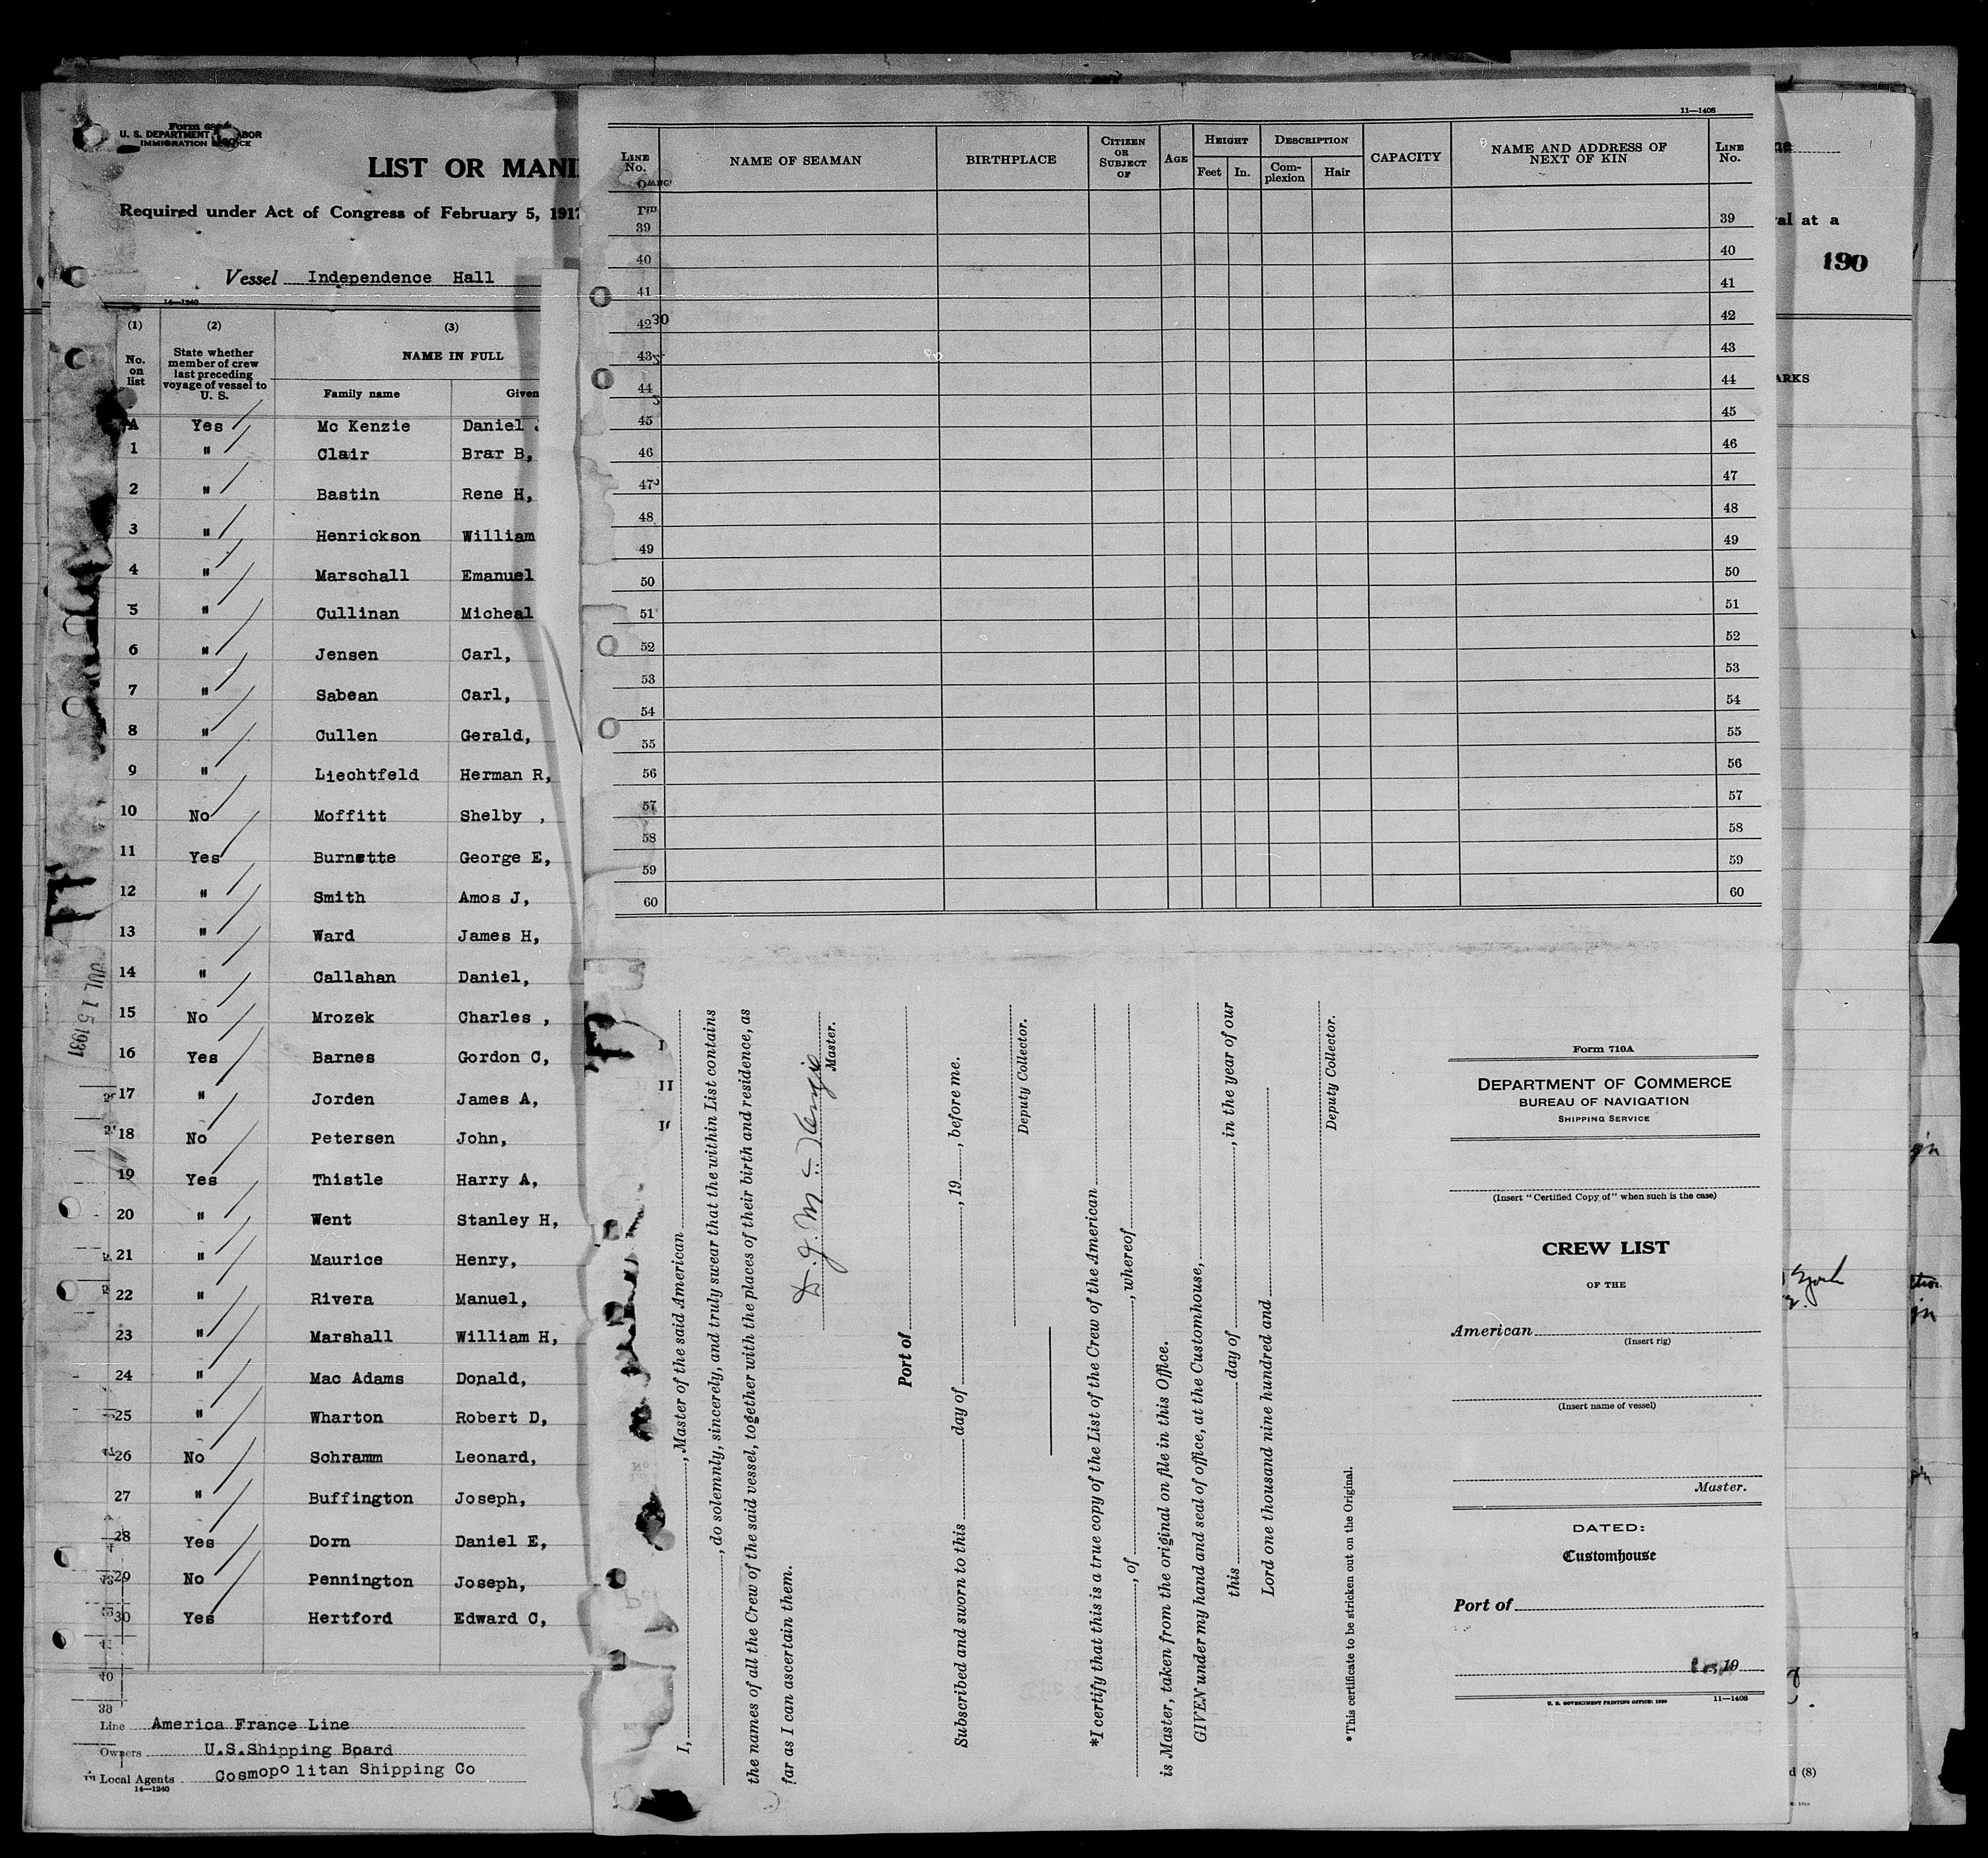 U. S. DEPARTMENT
IMMIGRATION
LIST OR MANI
Required under Act of Congress of February 5, 1917
Vessel Independence Hall
14—1240
(1) (2) (3)
No. on list
State whether member of crew last preceding voyage of vessel to U. S.
NAME IN FULL
Family name Given
A Yes Mc Kenzie Daniel
1 " Clair Brar B,
2 " Bastin Rene H,
3 " Henrickson William
4 " Marschall Emanuel
5 " Cullinan Micheal
6 " Jensen Carl,
7 " Sabean Carl,
8 " Cullen Gerald,
9 " Liechtfeld Herman R,
10 No Moffitt Shelby ,
11 Yes Burnette George E,
12 " Smith Amos J,
13 " Ward James H,
14 " Callahan Daniel,
15 No Mrozek Charles ,
16 Yes Barnes Gordon C,
17 " Jorden James A,
18 No Petersen John,
19 Yes Thistle Harry A,
20 " Went Stanley H,
21 " Maurice Henry,
22 " Rivera Manuel,
23 " Marshall William H,
24 " Mac Adams Donald,
25 " Wharton Robert D,
26 No Schramm Leonard,
27 " Buffington Joseph,
28 Yes Dorn Daniel E,
29 No Pennington Joseph,
30 Yes Hertford Edward C,
JUL 15 1931
Line America France Line
Owners U.S.Shipping Board
Local Agents Cosmopolitan Shipping Co
14—1240
11—1408
LINE No.
NAME OF SEAMAN
BIRTHPLACE
CITIZEN OR SUBJECT OF
AGE
HEIGHT
Feet In.
DESCRIPTION
Complexion Hair
CAPACITY
NAME AND ADDRESS OF NEXT OF KIN
LINE No.
39 39
40 40
41 41
42 42
43 43
44 44
45 45
46 46
47 47
48 48
49 49
50 50
51 51
52 52
53 53
54 54
55 55
56 56
57 57
58 58
59 59
60 60
I, , Master of the said American
, do solemnly, sincerely, and truly swear that the within List contains
the names of all the Crew of the said vessel, together with the places of their birth and residence, as
far as I can ascertain them.
D. J. McKenzie
Master.
Port of
Subscribed and sworn to this day of , 19 , before me.
Deputy Collector.
*I certify that this is a true copy of the List of the Crew of the American
, of , whereof
is Master, taken from the original on file in this Office.
GIVEN under my hand and seal of office, at the Customhouse,
this day of , in the year of our
Lord one thousand nine hundred and
Deputy Collector.
*This certificate to be stricken out on the Original.
Form 710A
DEPARTMENT OF COMMERCE
BUREAU OF NAVIGATION
SHIPPING SERVICE
(Insert "Certified Copy of" when such is the case)
CREW LIST
OF THE
American
(Insert rig)
(Insert name of vessel)
Master.
DATED:
Customhouse
Port of
19
U. S. GOVERNMENT PRINTING OFFICE: 1930 11—1408
al at a
190
ARKS
d (8)